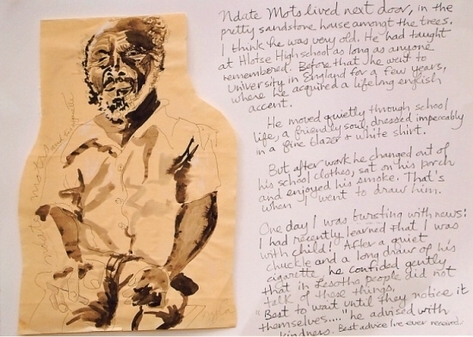 Ndate Mots lived next door, in the
pretty sandstone house amongst the trees.
I think he was very old. He had taught
at Hlotse High school as long as anyone
remembered. Before that he went to
University in England for a few years,
where he acquired a lifelong english
accent.
He moved quietly through school
life, a friendly soul, dressed impeccably
in a fine blazer & white shirt.
But after work he changed out of
his school clothes, sat on his porch
and enjoyed his smoke. That's
when I went to draw him.
One day I was bursting with news:
I had recently learned that I was
with child! After a quiet
chuckle and a long draw of his
cigarette, he confided gently
that in Lesotho people did not
talk of these things.
"Best to wait until they notice it
themselves...." he advised with
kindness. Best advice I've ever received.